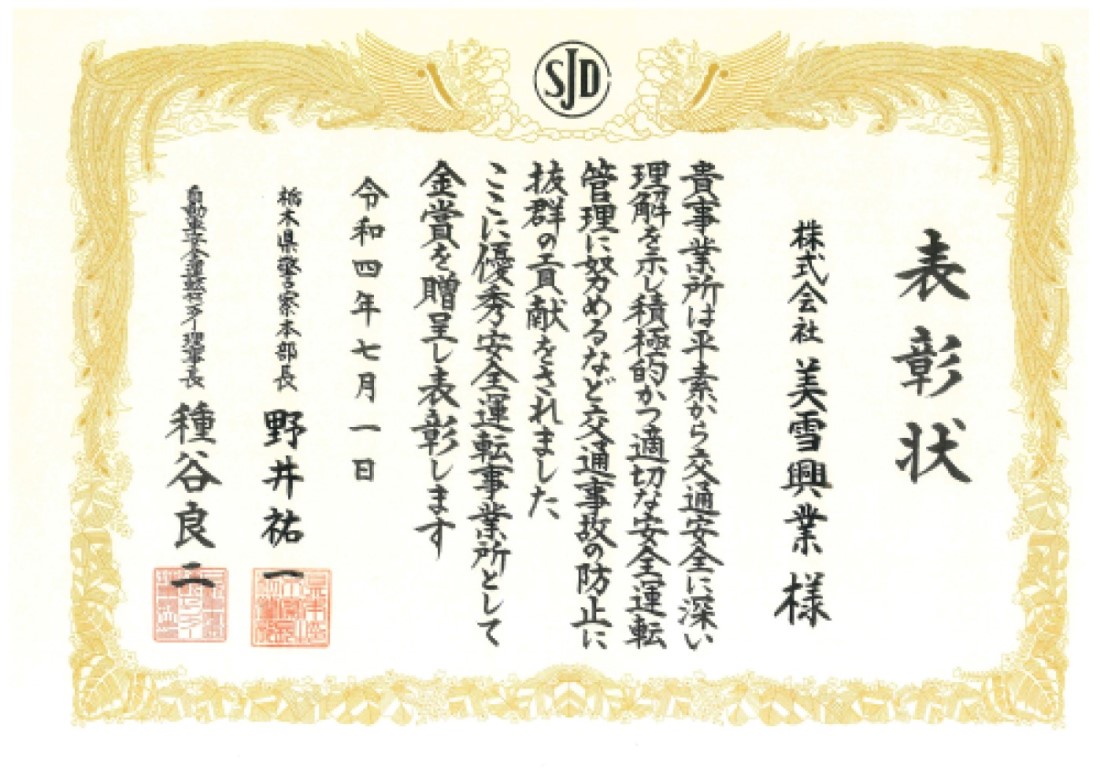 SJD
表彰状
株式会社 美雪興業 様
貴事業所は平素から交通安全に深い
理解を示し積極的かつ適切な安全運転
管理に努めるなど交通事故の防止に
抜群の貢献をされました
ここに優秀安全運転事業所として
金賞を贈呈し表彰します
令和四年七月一日
栃木県警察本部長 野井祐一
自動車安全運転センター理事長 種谷良二